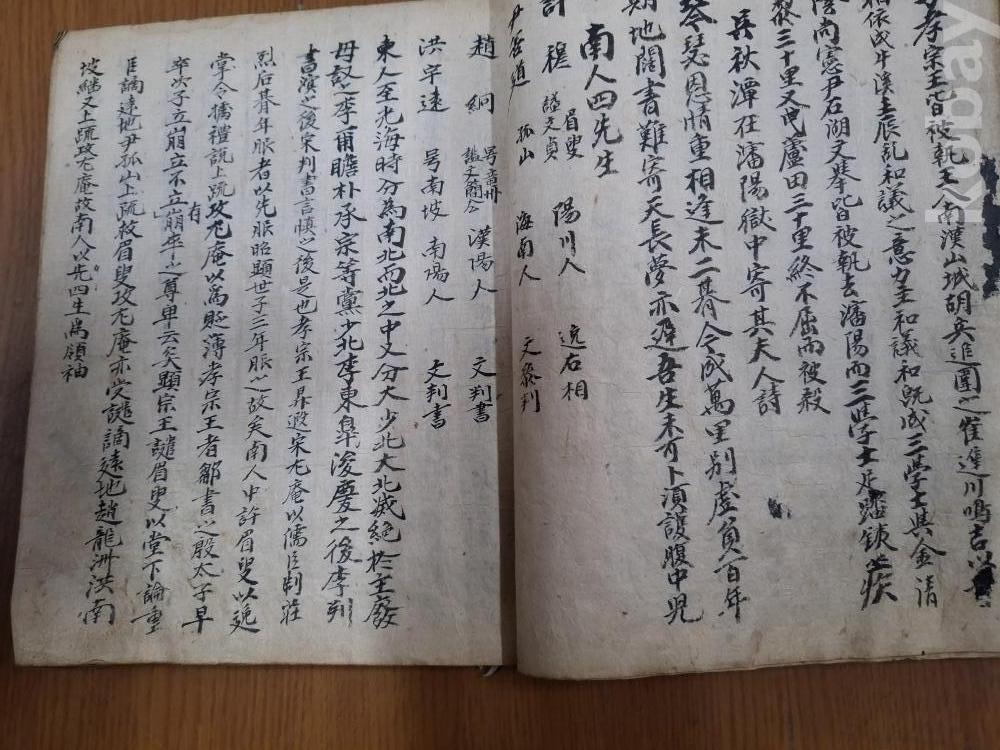 孝宗王皆被執王入南漢山城胡兵追圍之崔遲川鳴吉以
相依成牛溪壬辰乱和議之意力主和議和旣成三學士與金淸
陰尙憲尹石湖文擧皆被執去瀋陽而三學士足踏鉄蒺
藜三十里又曳蘆田三十里終不屈而被殺
吳秋潭在瀋陽獄中寄其夫人詩
琴瑟恩情重相逢未二朞今成萬里別虛負百年
期地闊書難寄天長夢亦遲吾生未可卜須護腹中兒
南人四先生
許穆 号眉叟 諡文貞 陽川人 逸右相
尹善道 孤山 海南人 文參判
趙絅 号龍州 諡文簡公 漢陽人 文判書
洪宇遠 号南坡 南陽人 文判書
東人至光海時分爲南北而北之中又分大少北大北滅絶於主廢
母發之李爾瞻朴承宗等黨少北李東皐浚慶之後李判
書濱之後宋判書言愼之後是也孝宗王昇遐宋尤庵以儒臣制莊
烈后朞年服者以先服昭顯世子三年服之故矣南人中許眉叟以逸
掌令攄禮說上疏攻尤庵以爲貶薄孝宗王者鄒書之殷太子早
卒次子立崩立不立崩年有之尊卑云矣顯宗王譴眉叟以堂下論重
臣謫遠地尹孤山上疏救眉叟攻尤庵亦受譴謫遠地趙龍洲洪南
坡繼又上疏攻尤庵故南人以先四生爲領袖
kobay